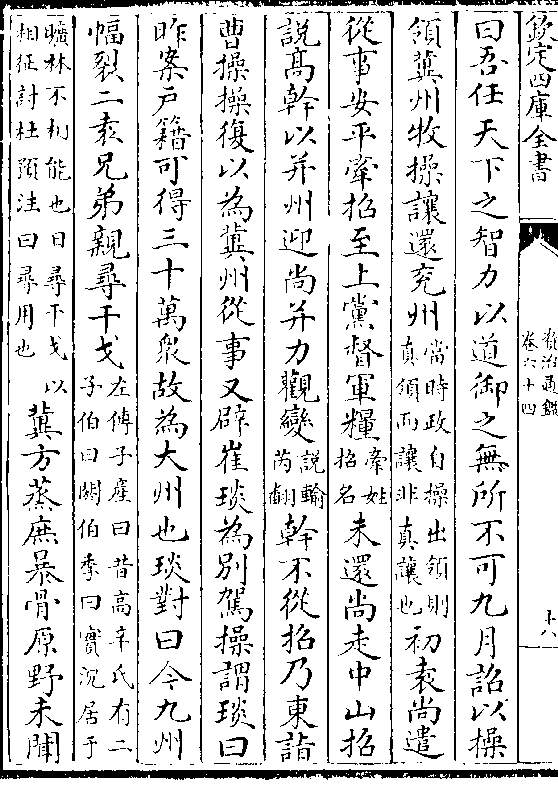 欽定四庫全書
資治通鑑
卷六十四
十八
曰吾任天下之智力以道御之無所不可九月詔以操
領冀州牧操讓還兖州當時政自操出領則真領而讓非真讓也初袁尚遣
從事安平牽招至上黨督軍糧牽姓招名未還尚走中山招
說髙幹以并州迎尚并力觀變說輸芮翻幹不從招乃東詣
曹操操復以為冀州從事又辟崔琰為别駕操謂琰曰
昨案户籍可得三十萬衆故為大州也琰對曰今九州
幅裂二袁兄弟親尋干戈左傳子產曰昔高辛氏有二子伯曰閼伯季曰實沉居于
曠林不相能也日尋干戈以相征討杜預注曰尋用也冀方蒸庶暴骨原野未聞